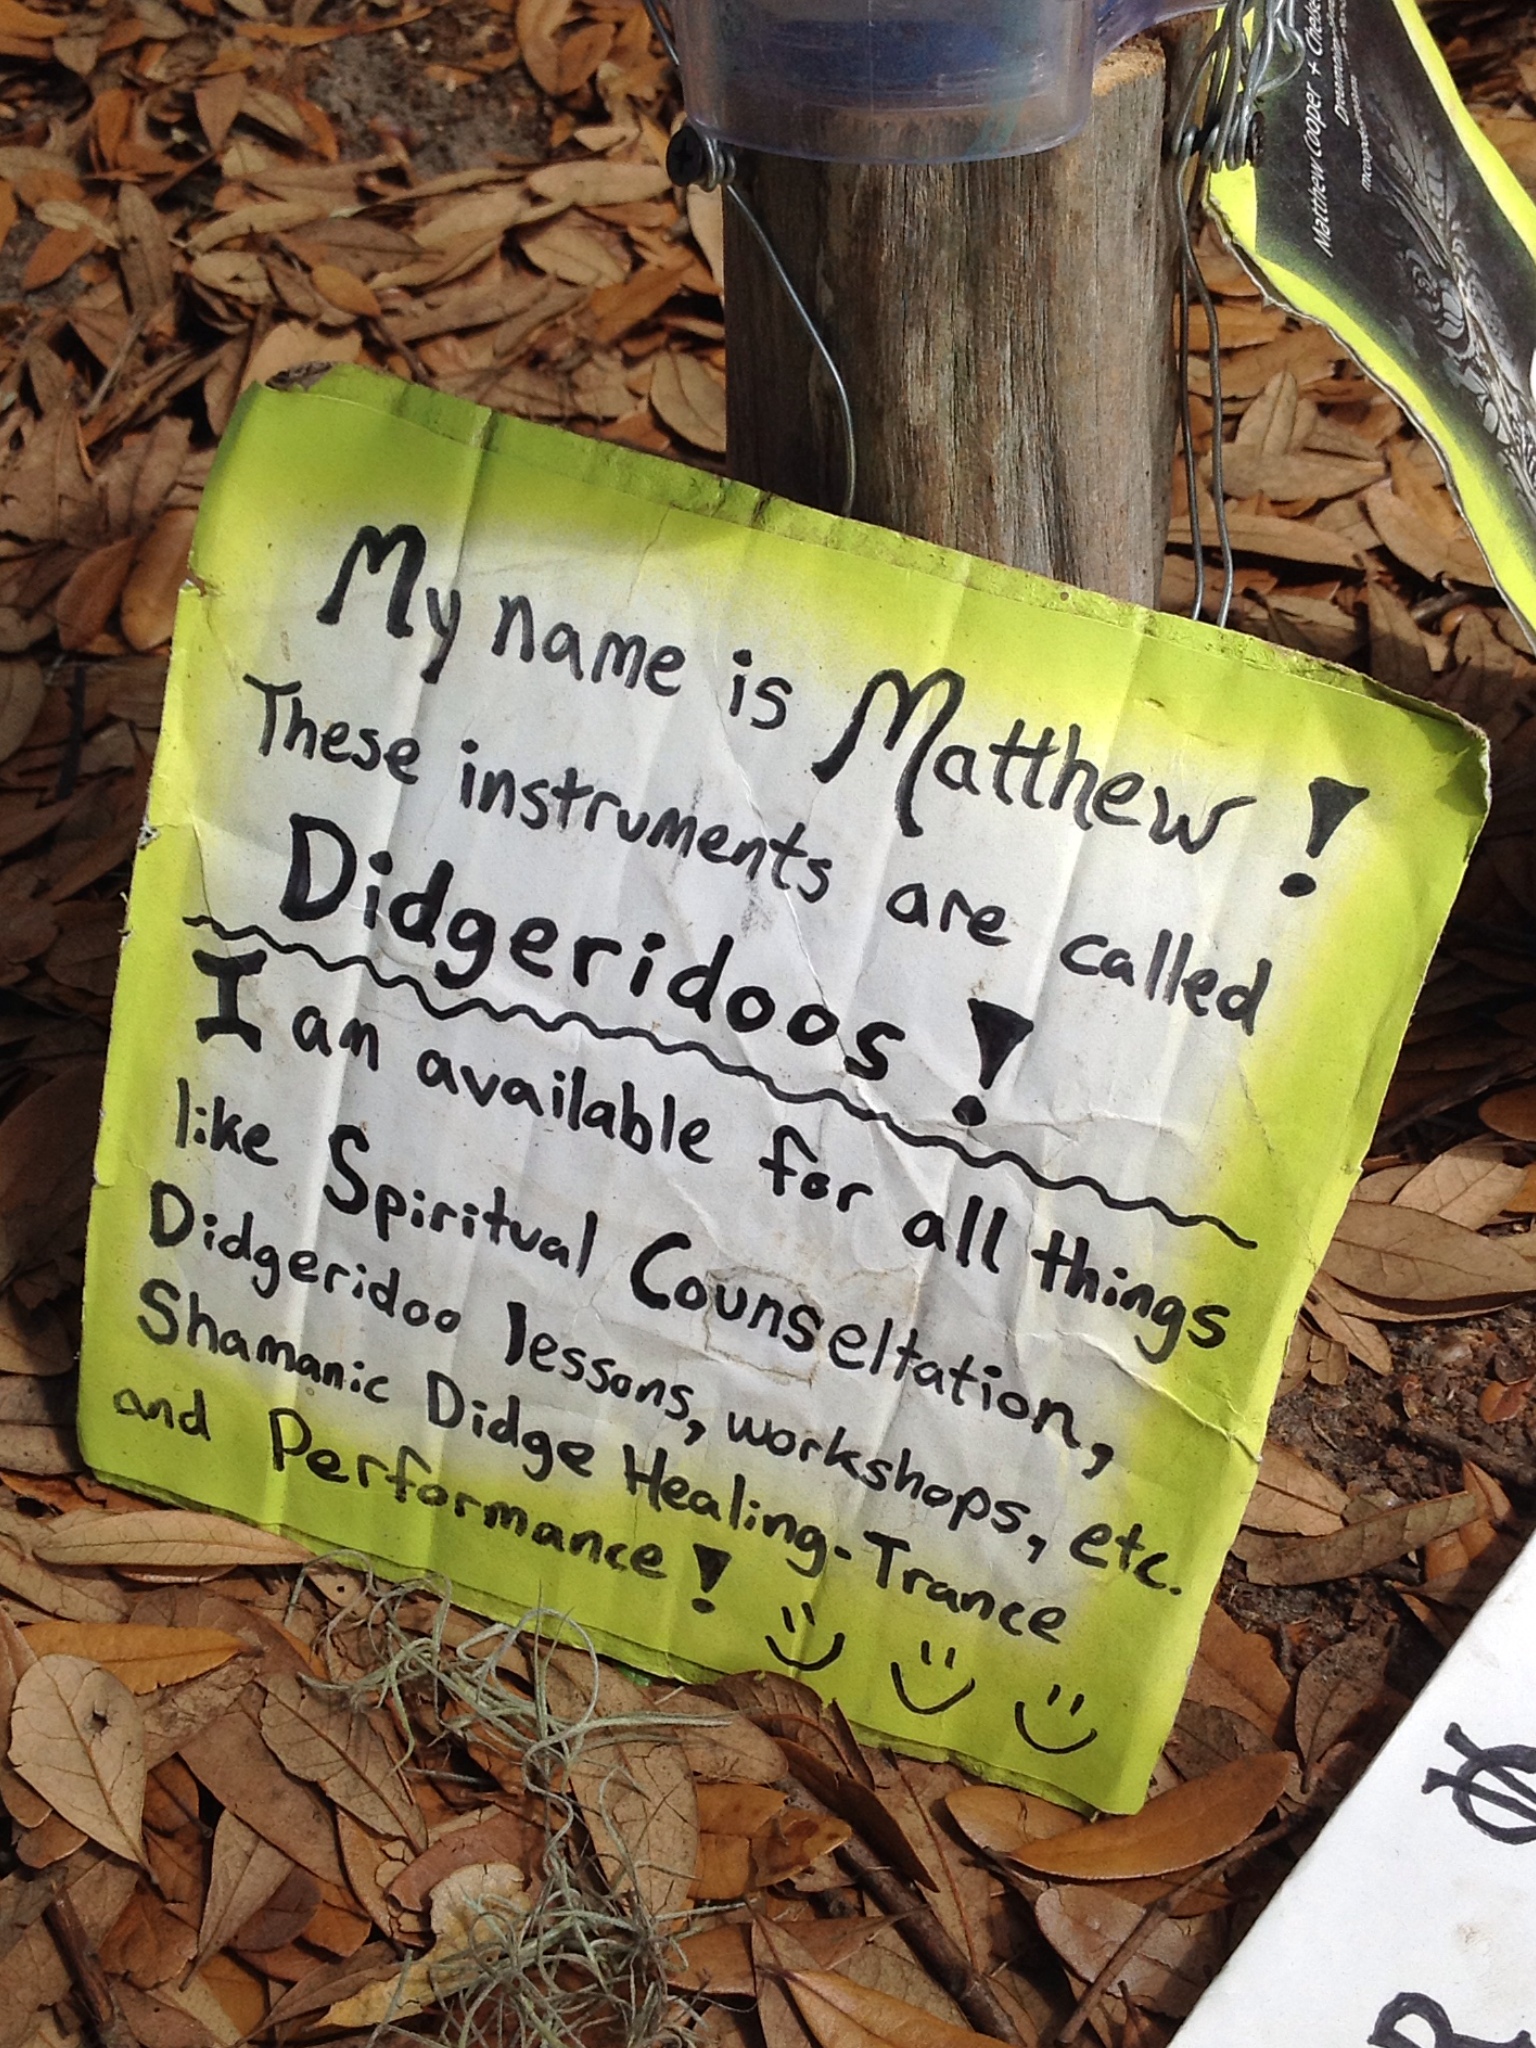 My name is Matthew!
These instruments are called
Didgeridoos!
I am available for all things
like Spiritual Counseltation,
Didgeridoo lessons, workshops, etc.
Shamanic Didge Healing-Trance
and Performance!
Matthew Cooper +